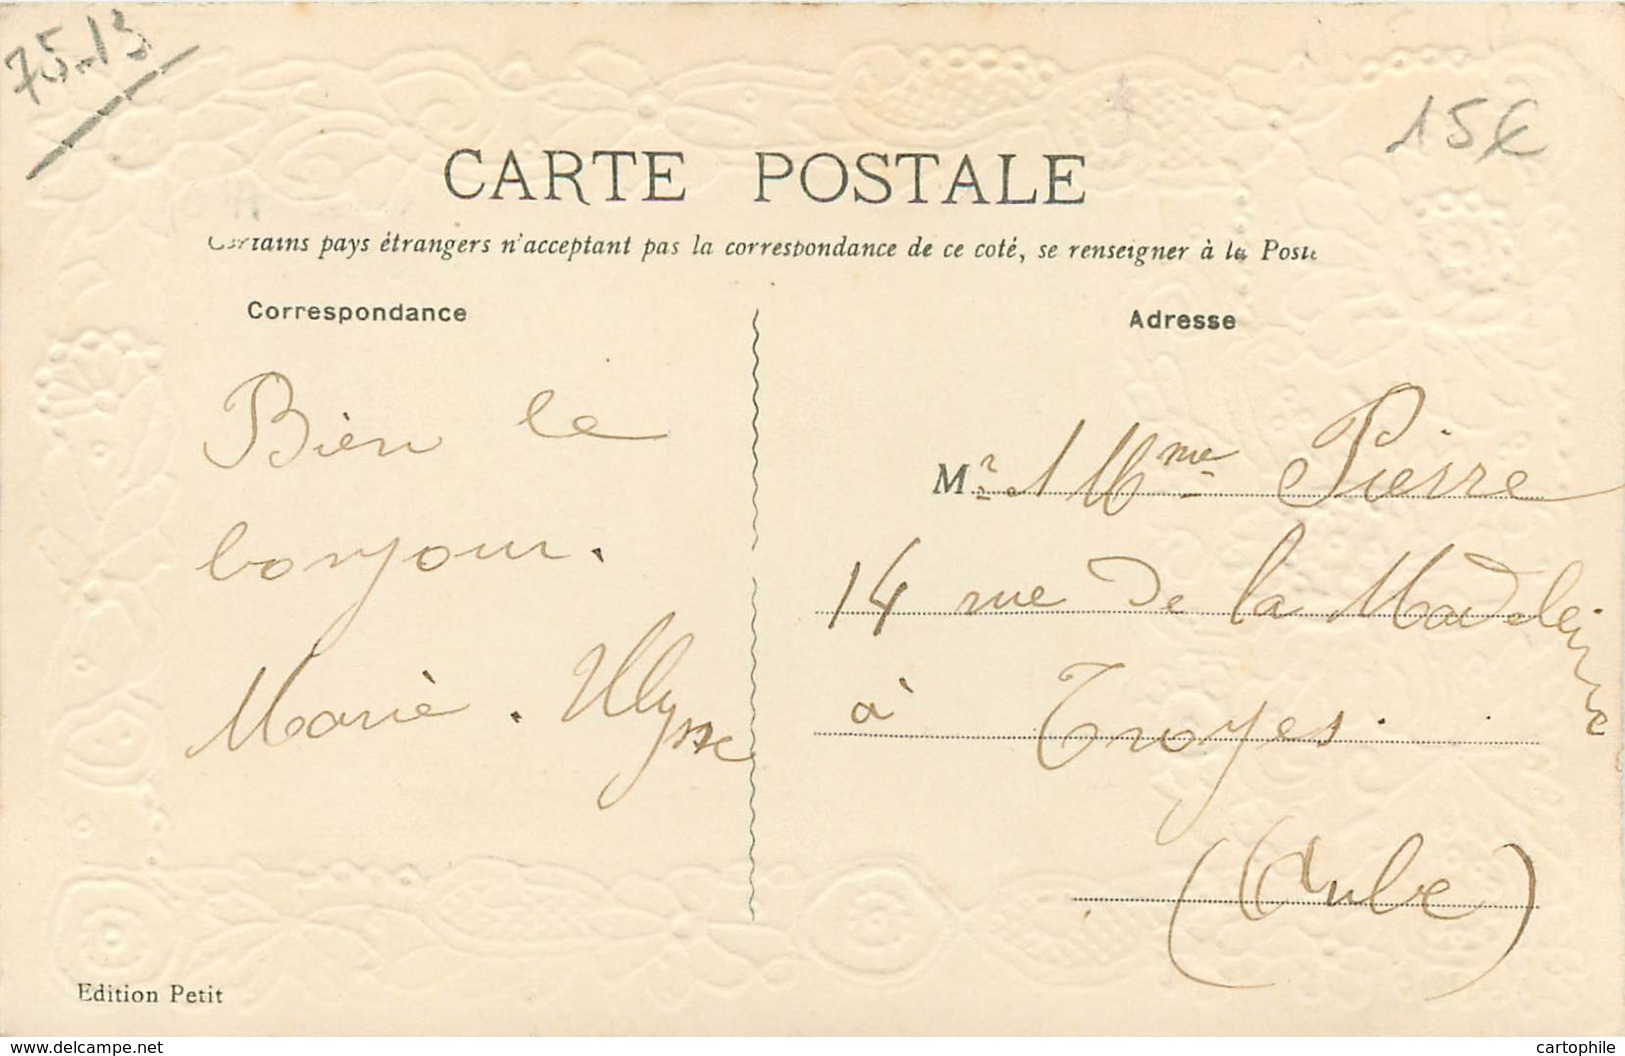 75-13
15€
CARTE POSTALE
Certains pays étrangers n'acceptant pas la correspondance de ce coté, se renseigner à la Poste
Correspondance
Adresse
Bien le
bonjour.
Marie. Ulysse
Mr Mme Pierre
14 rue de la Madeleine
à Troyes.
(Aube)
Edition Petit
www.delcampe.net
cartophile